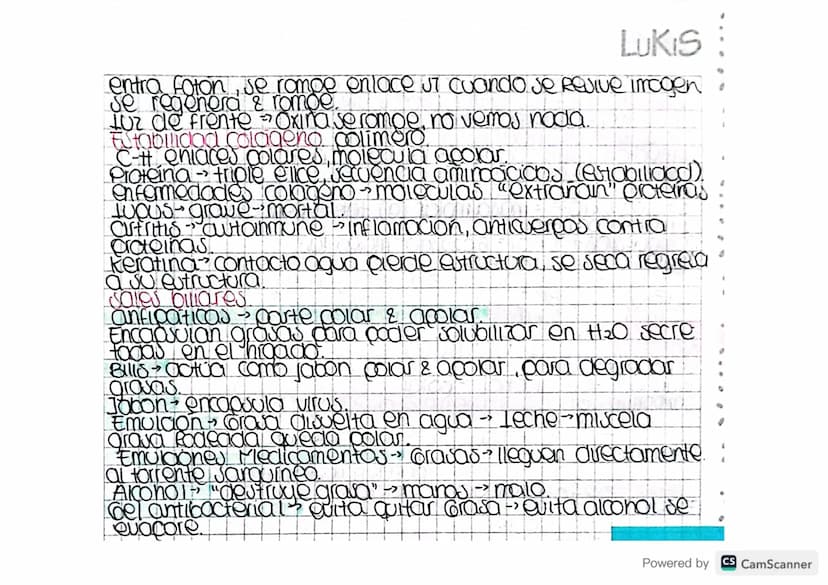 LUKIS
entra fotón, se rompe enlace π cuando se resive imagen
se regenera & rompe.
Luz de frente → oxina se rompe, no vemos nada.
Estabilidad colágeno polímero
C-H enlaces polares, molécula apolar.
Proteína → triple élice, secuencia aminoácidos (estabilidad).
enfermedades colágeno → moléculas "extrañan" proteínas
Lupus → grave → mortal.
artritis → autoinmune → inflamación, anticuerpos contra
proteínas.
Keratina → contacto agua pierde estructura, se seca regresa
a su estructura.
Sales biliares.
anfipáticas → parte polar & apolar.
Encapsulan grasas para poder solubilizar en H2O secre
tadas en el hígado.
Bilis → actúa como jabón polar & apolar, para degradar
grasas.
Jabón → encapsula virus.
Emulción → Grasa disuelta en agua → Leche → miscela
grasa rodeada queda polar.
Emulciones Medicamentos → Grasas → lleguen directamente
al torrente sanguíneo.
Alcohol → "destruye grasa" → manos → malo.
Gel antibacterial → evita quitar Grasa → evita alcohol se
evapore.
Powered by CS CamScanner